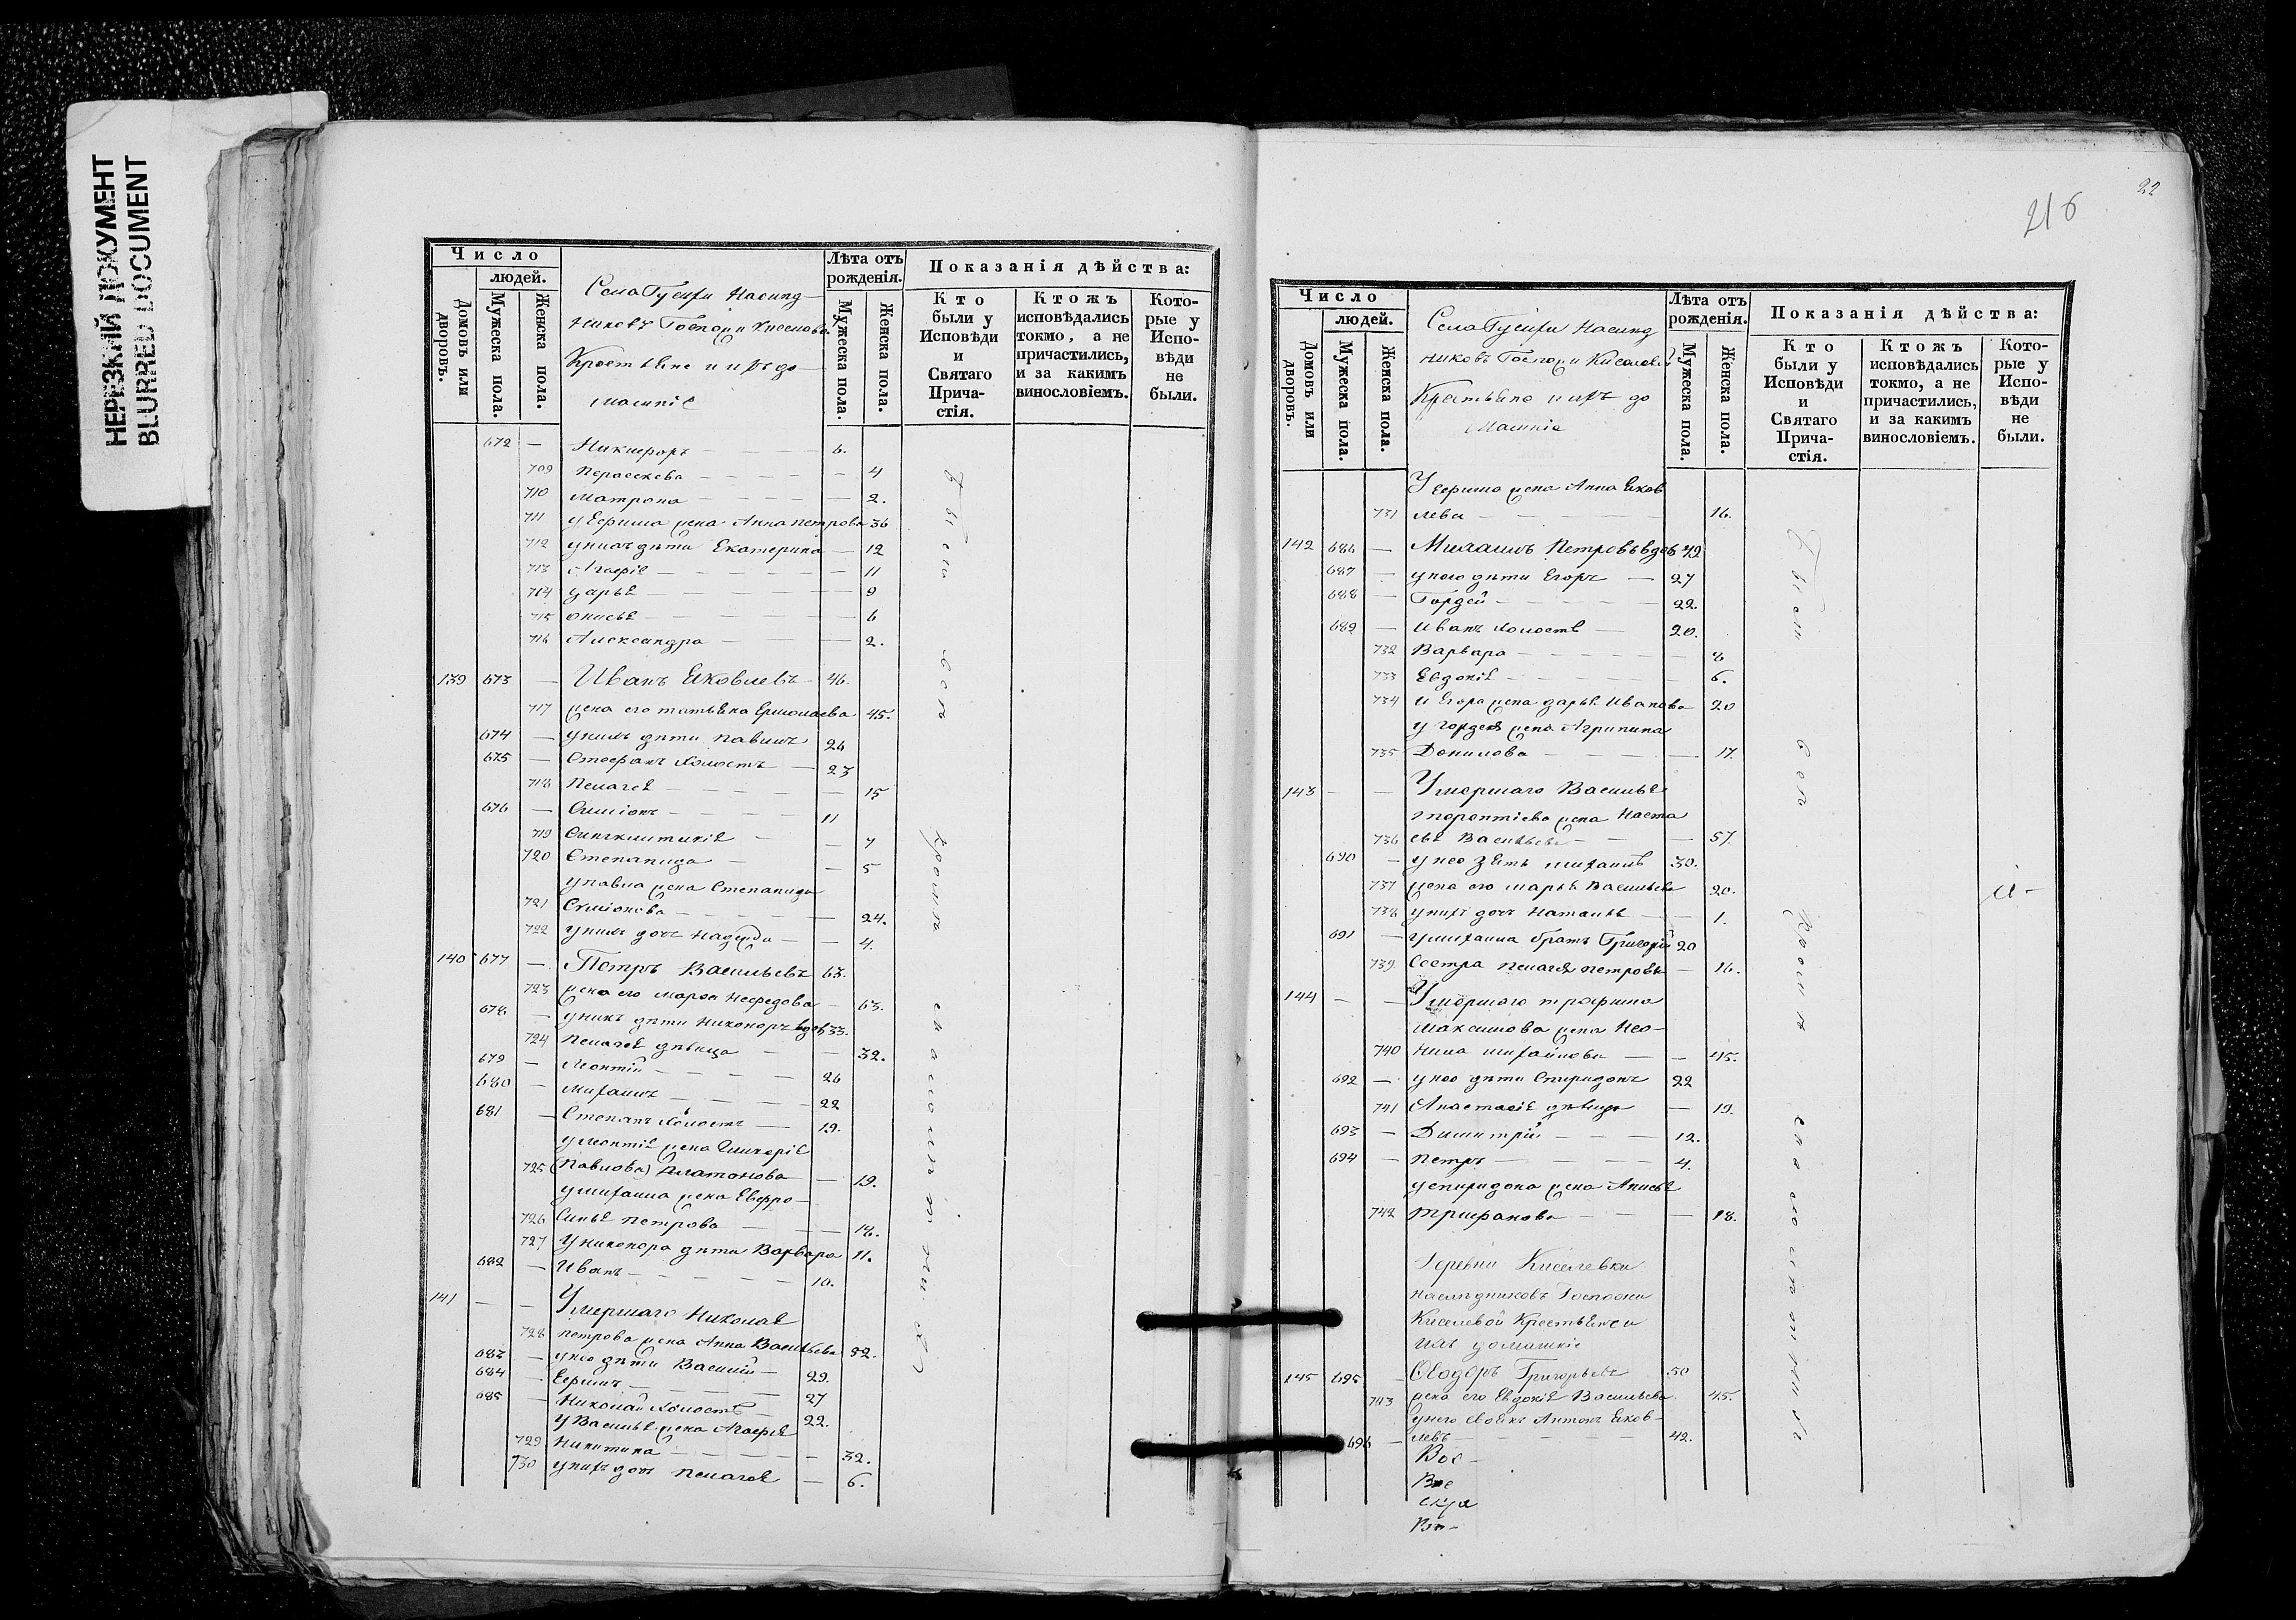 НЕРЕЗКИЙ ДОКУМЕНТ
BLURRED DOCUMENT
Число
людей.
Домовъ или дворовъ.
Мужеска пола.
Женска пола.
Лѣта отъ рожденія.
Мужеска пола.
Женска пола.
Показанія дѣйства:
Кто были у Исповѣди и Святаго Прича-стія.
Ктожъ исповѣдались токмо, а не причастились, и за какимъ винословіемъ.
Кото-рые у Испо-вѣди не были.
никовъ Госпожи Киселевой
Крестьяне и ихъ до
машніе
672 — Никифоръ 6.
709 Параскева 4
710 Матрона 2.
711 у Ефима жена Анна Петрова 36
712 у нихъ дѣти Екатерина 12
713 11
714 Дарья 9
715 6
716 Александра 2.
139 673 — Иванъ Яковлевъ 46.
717 жена его Татьяна Ермолаева 45.
674 — у нихъ дѣти Павилъ 26
675 — Стефанъ холостъ 23
718 Пелагея 15
676 — Симіонъ 11
719 7
720 Степанида 5
у Павла жена Степанида
721 Симіонова 24.
722 у нихъ дочь Надежда 4.
140 677 — Петръ Васильевъ 63.
723 жена его Марфа Нефедова 63.
678 — у нихъ дѣти Никоноръ вдов 33.
724 Пелагея дѣвица 32.
679 — Леонтій 26
680 — Михаилъ 22
681 — Степанъ холостъ 19.
у Леонтія жена Гликерія
725 (Павлова) Платонова 19.
у Михаила жена Евфро-
726 синья Петрова 18.
727 у Никонора дѣти Варвара 11.
682 — Иванъ 10.
141 — — Умершаго Николая
728 Петрова жена Анна Васильева 52.
683 — у нео дѣти Василій 29.
684 — Ефимъ 27
685 — Николай холостъ 22.
у Василья жена Агафія
729 Никитина 32.
730 у нихъ дочь Пелагея 6.
Были
вси
кромѣ
22
216
Число
людей.
Домовъ или дворовъ.
Мужеска пола.
Женска пола.
Лѣта отъ рожденія.
Мужеска пола.
Женска пола.
Показанія дѣйства:
Кто были у Исповѣди и Святаго Прича-стія.
Ктожъ исповѣдались токмо, а не причастились, и за какимъ винословіемъ.
Кото-рые у Испо-вѣди не были.
никовъ Госпожи Киселевой
Крестьяне и ихъ до
машніе
У Ефима жена Анна Яков
731 лева 16.
142 686 — Михаилъ Петровъ вдов 49
687 — у него дѣти Егоръ 27
688 — Гордей 22.
689 — Иванъ холостъ 20.
732 Варвара 8
733 Евдокія 6.
734 у Егора жена Дарья Иванова 20
у Гордея жена Агрипина
735 Данилова 17.
143 — — Умершаго Василья
Терентіева жена Наста
736 сья Васильева 57.
690 — у нео зять Михаилъ 30.
737 жена его Марья Васильева 20.
738 у нихъ дочь Наталья 1.
691 — у Михаила братъ Григорій 20
739 Сестра Пелагея Петрова 16.
144 — — Умершаго Трофима
Максимова жена Нео-
740 нила Михайлова 45.
692 — у нео дѣти Спиридонъ 22
741 Анастасія дѣвица 19.
693 — Димитрій 12.
694 — Петръ 4.
у Спиридона жена Анисья
742 Трифанова 18.
Деревни Киселевки
наслѣдниковъ Госпожи
Киселевой Крестьяне и
ихъ домашніе
145 695 — Ѳеодоръ Григорьевъ 50
743 жена его Евдокія Васильева 45.
у него своякъ Антонъ Яков-
696 — левъ 42.
Вос-
Вос
Были
вси
кромѣ